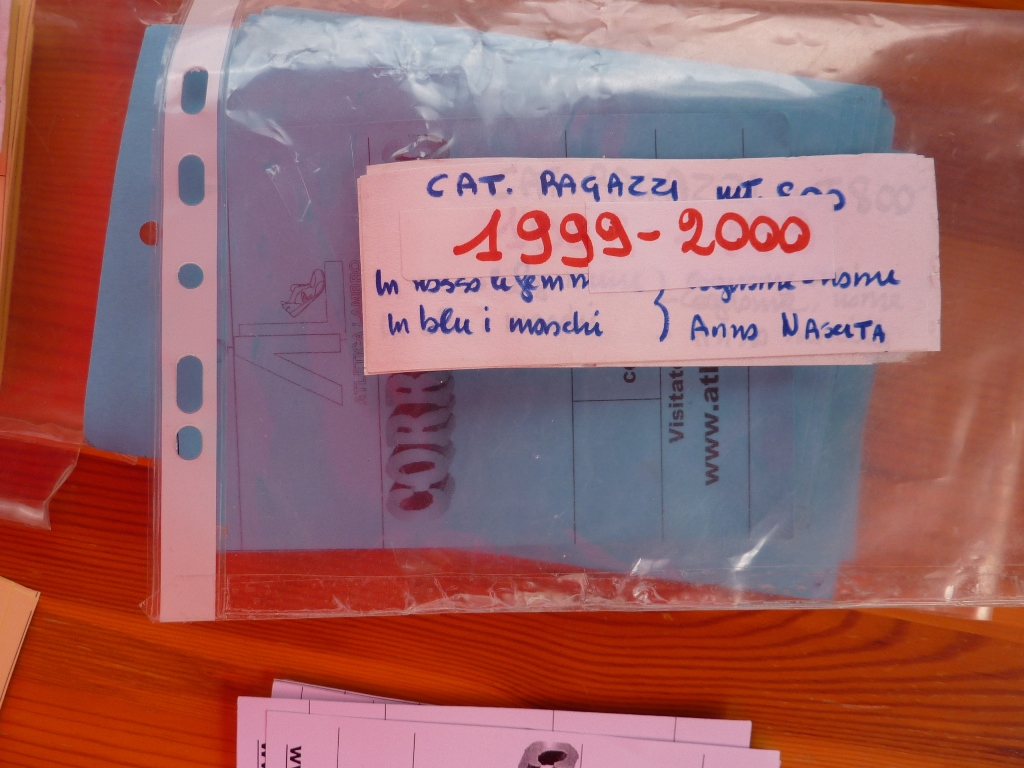 CAT. RAGAZZI MT. 800
1999-2000
In rosso le femm
cognome - nome
In blu i maschi } Anno NASCITA
ATLETICA LAMBRO
CORR
co
Visitat
www.atl